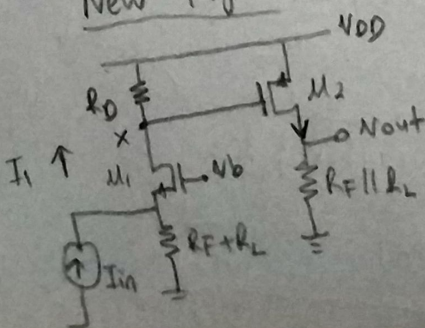 New
VDD
RD
M2
X
Vout
I1
M1
Vb
RF || RL
RF + RL
Iin